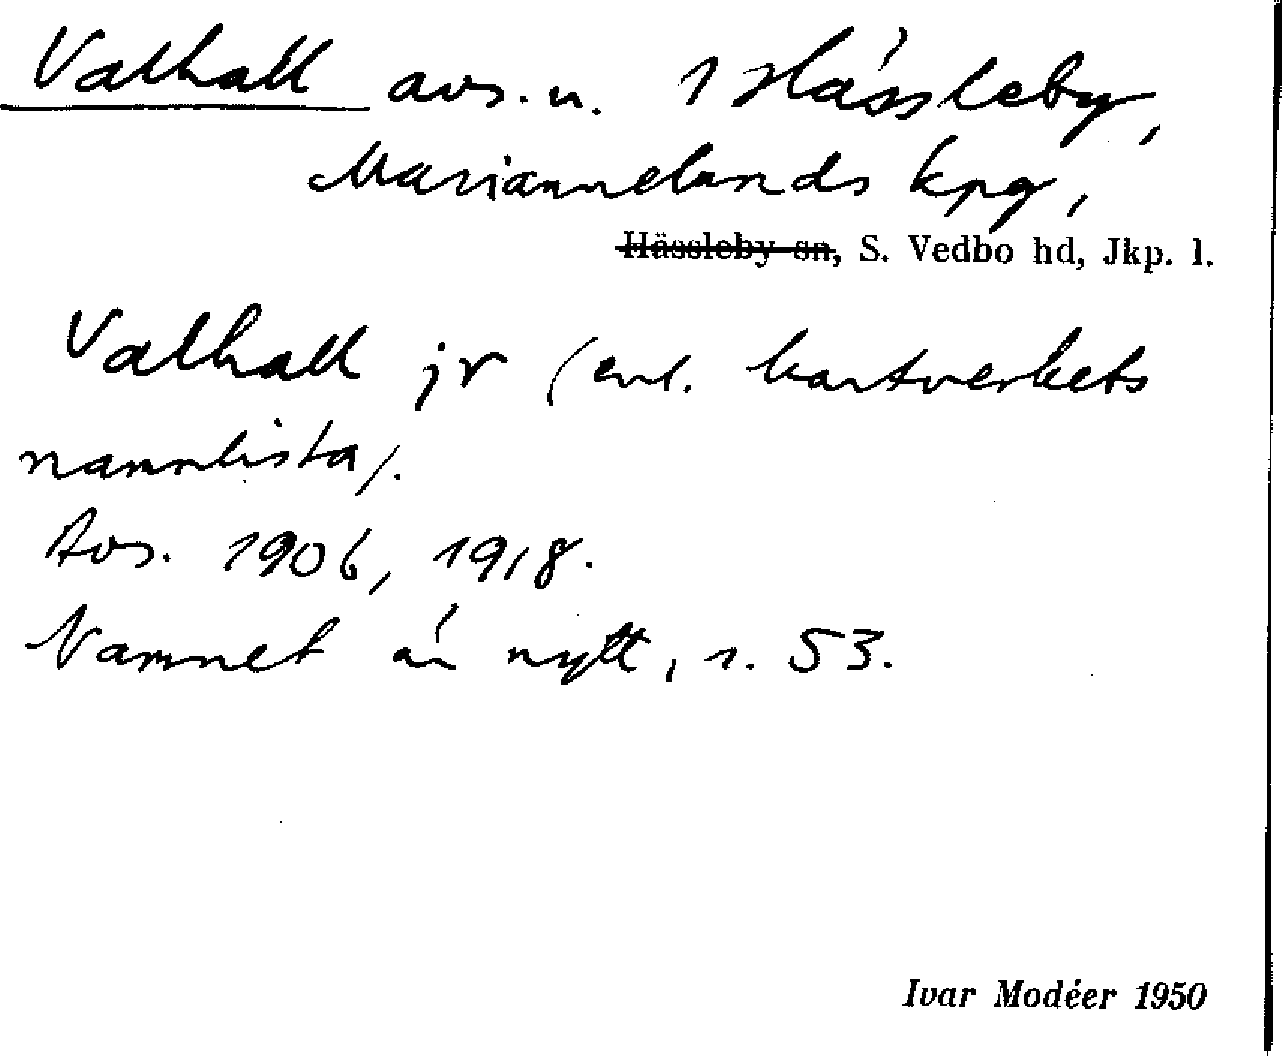 Valhall avs. u. 1 Hässleby,
Mariannelunds kpg,
Hässleby sn, S. Vedbo hd, Jkp. l.
Valhall jr (enl. kartverkets
namnlista).
Avs. 1906, 1918.
Namnet är nytt, s. 53.
Ivar Modéer 1950